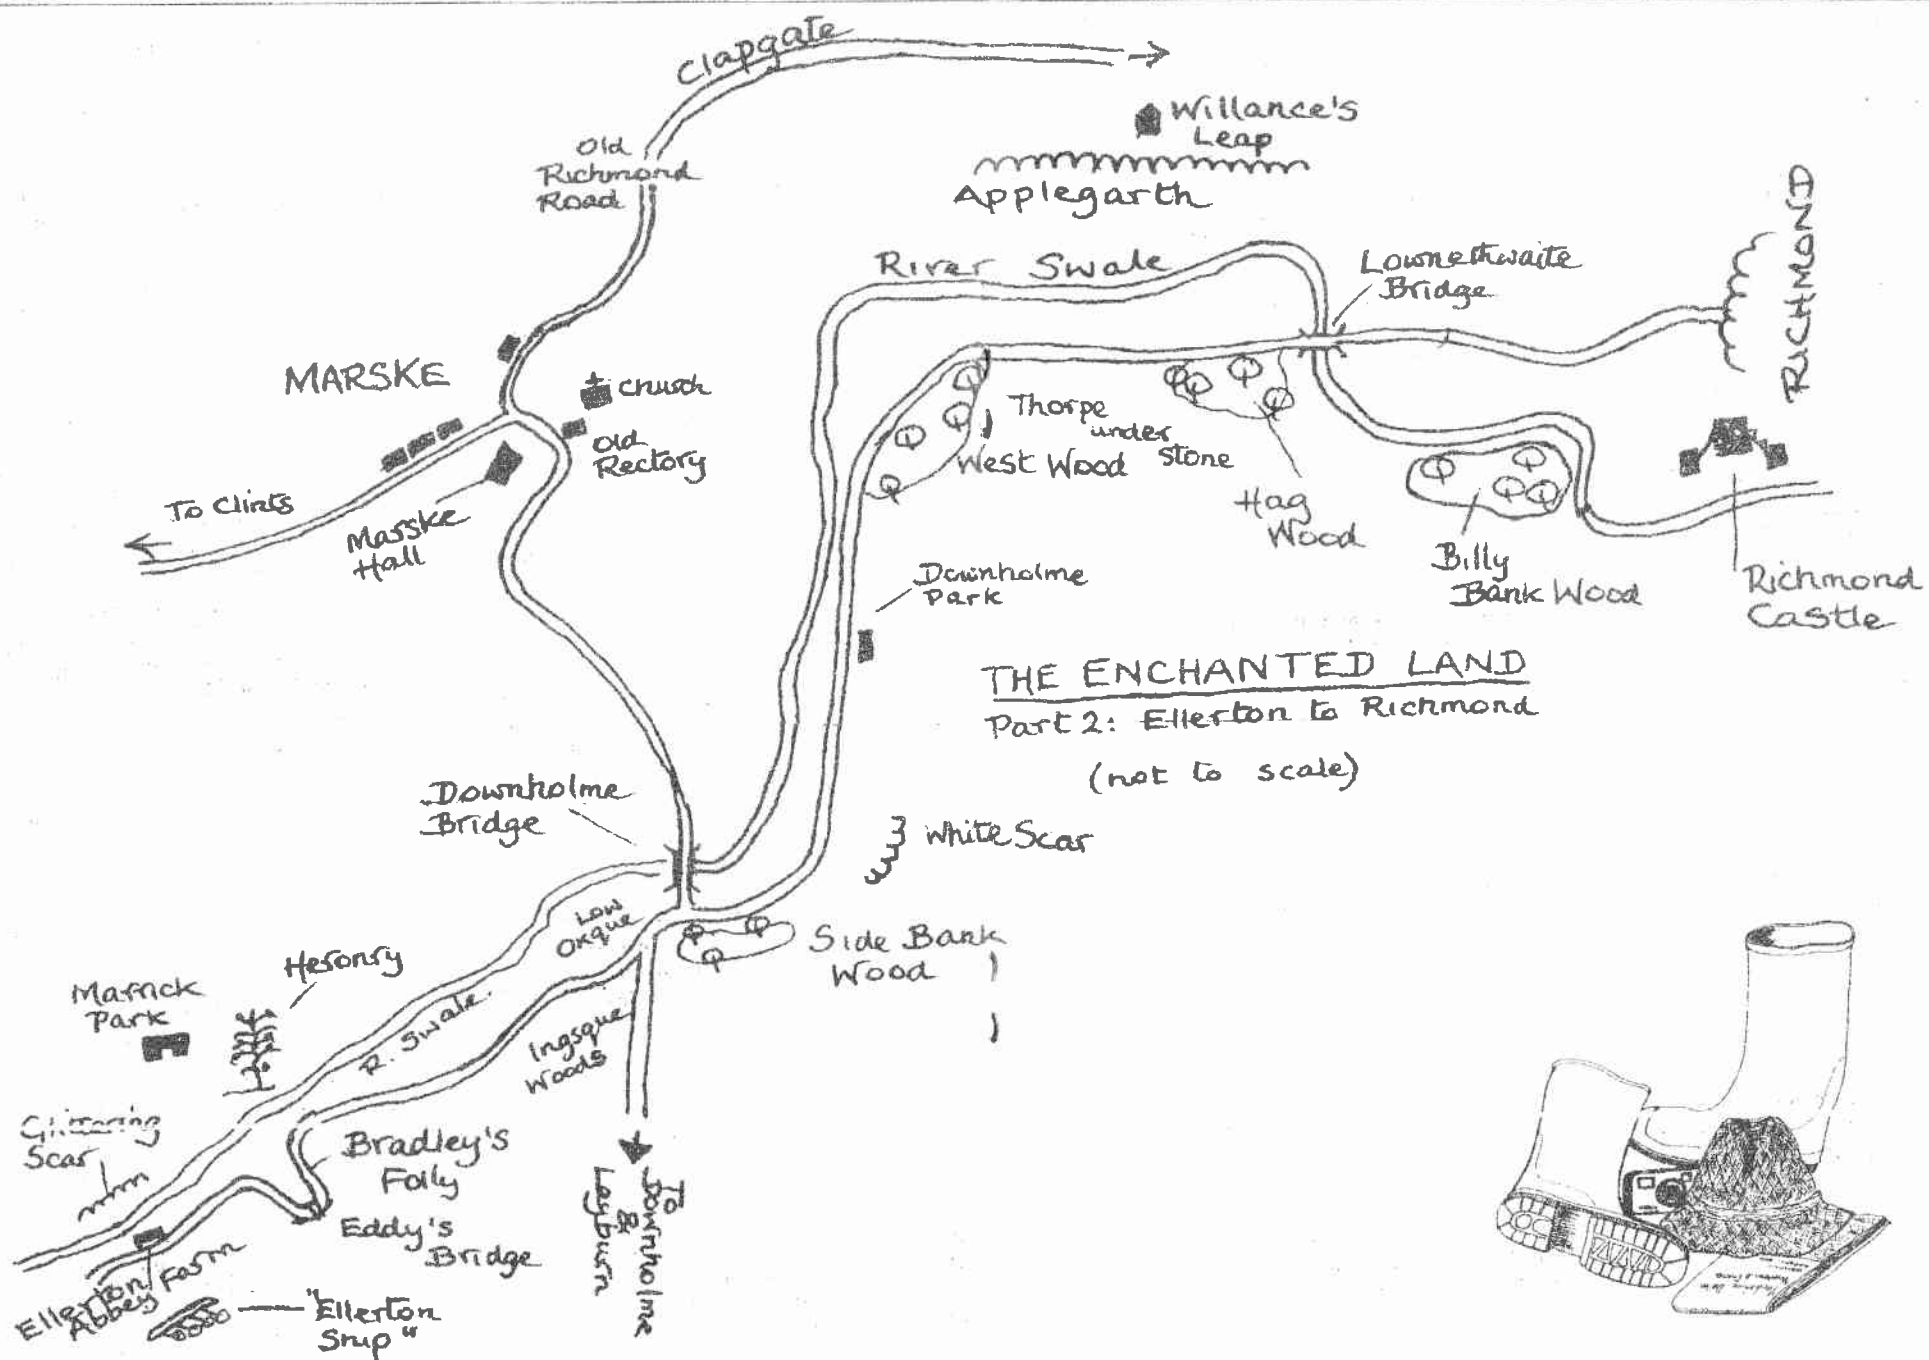 Clapgate
Willance's
Leap
Old
Richmond
Road
Applegarth
RICHMOND
River Swale
Lownethwaite
Bridge
MARSKE
Church
Old
Rectory
Thorpe
under
stone
West Wood
To Clints
Marske
Hall
Hag
Wood
Billy
Bank Wood
Richmond
Castle
Downholme
Park
THE ENCHANTED LAND
Part 2: Ellerton to Richmond
(not to scale)
Downholme
Bridge
White Scar
Low
Oxque
Side Bank
Wood
Heronry
Marrick
Park
R. Swale
Ingsque
Woods
Glittering
Scar
Bradley's
Folly
Eddy's
Bridge
To
Downholme
&
Leyburn
Ellerton
Abbey Farm
"Ellerton
Ship"